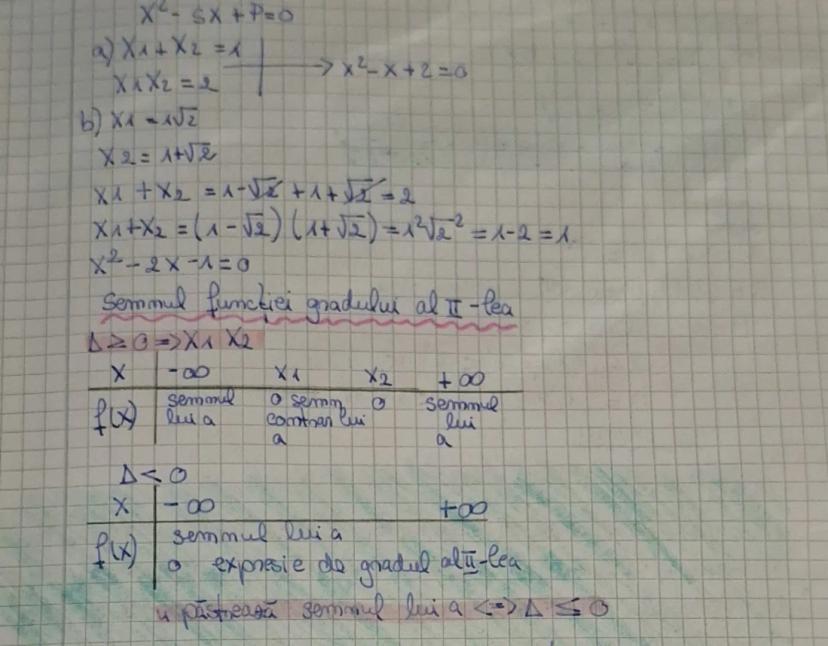 x² - Sx + P = 0
a) x1 + x2 = 1
x1x2 = 2 → x² - x + 2 = 0
b) x1 = 1√2
x2 = 1+√2
x1 + x2 = 1-√2 + 1+√2 = 2
x1+x2 = (1-√2) (1+√2) = 1²√2² = 1-2 = 1
x² - 2x - 1 = 0
Semnul funcției gradului al II-lea
Δ ≥ 0 => x1 x2
x -∞ x1 x2 +∞
f(x) semnul 0 semn 0 semnul
lui a contrar lui lui
a a
Δ < 0
x -∞ +∞
f(x) semnul lui a
o expresie de gradul al II-lea
păstrează semnul lui a <=> Δ ≤ 0